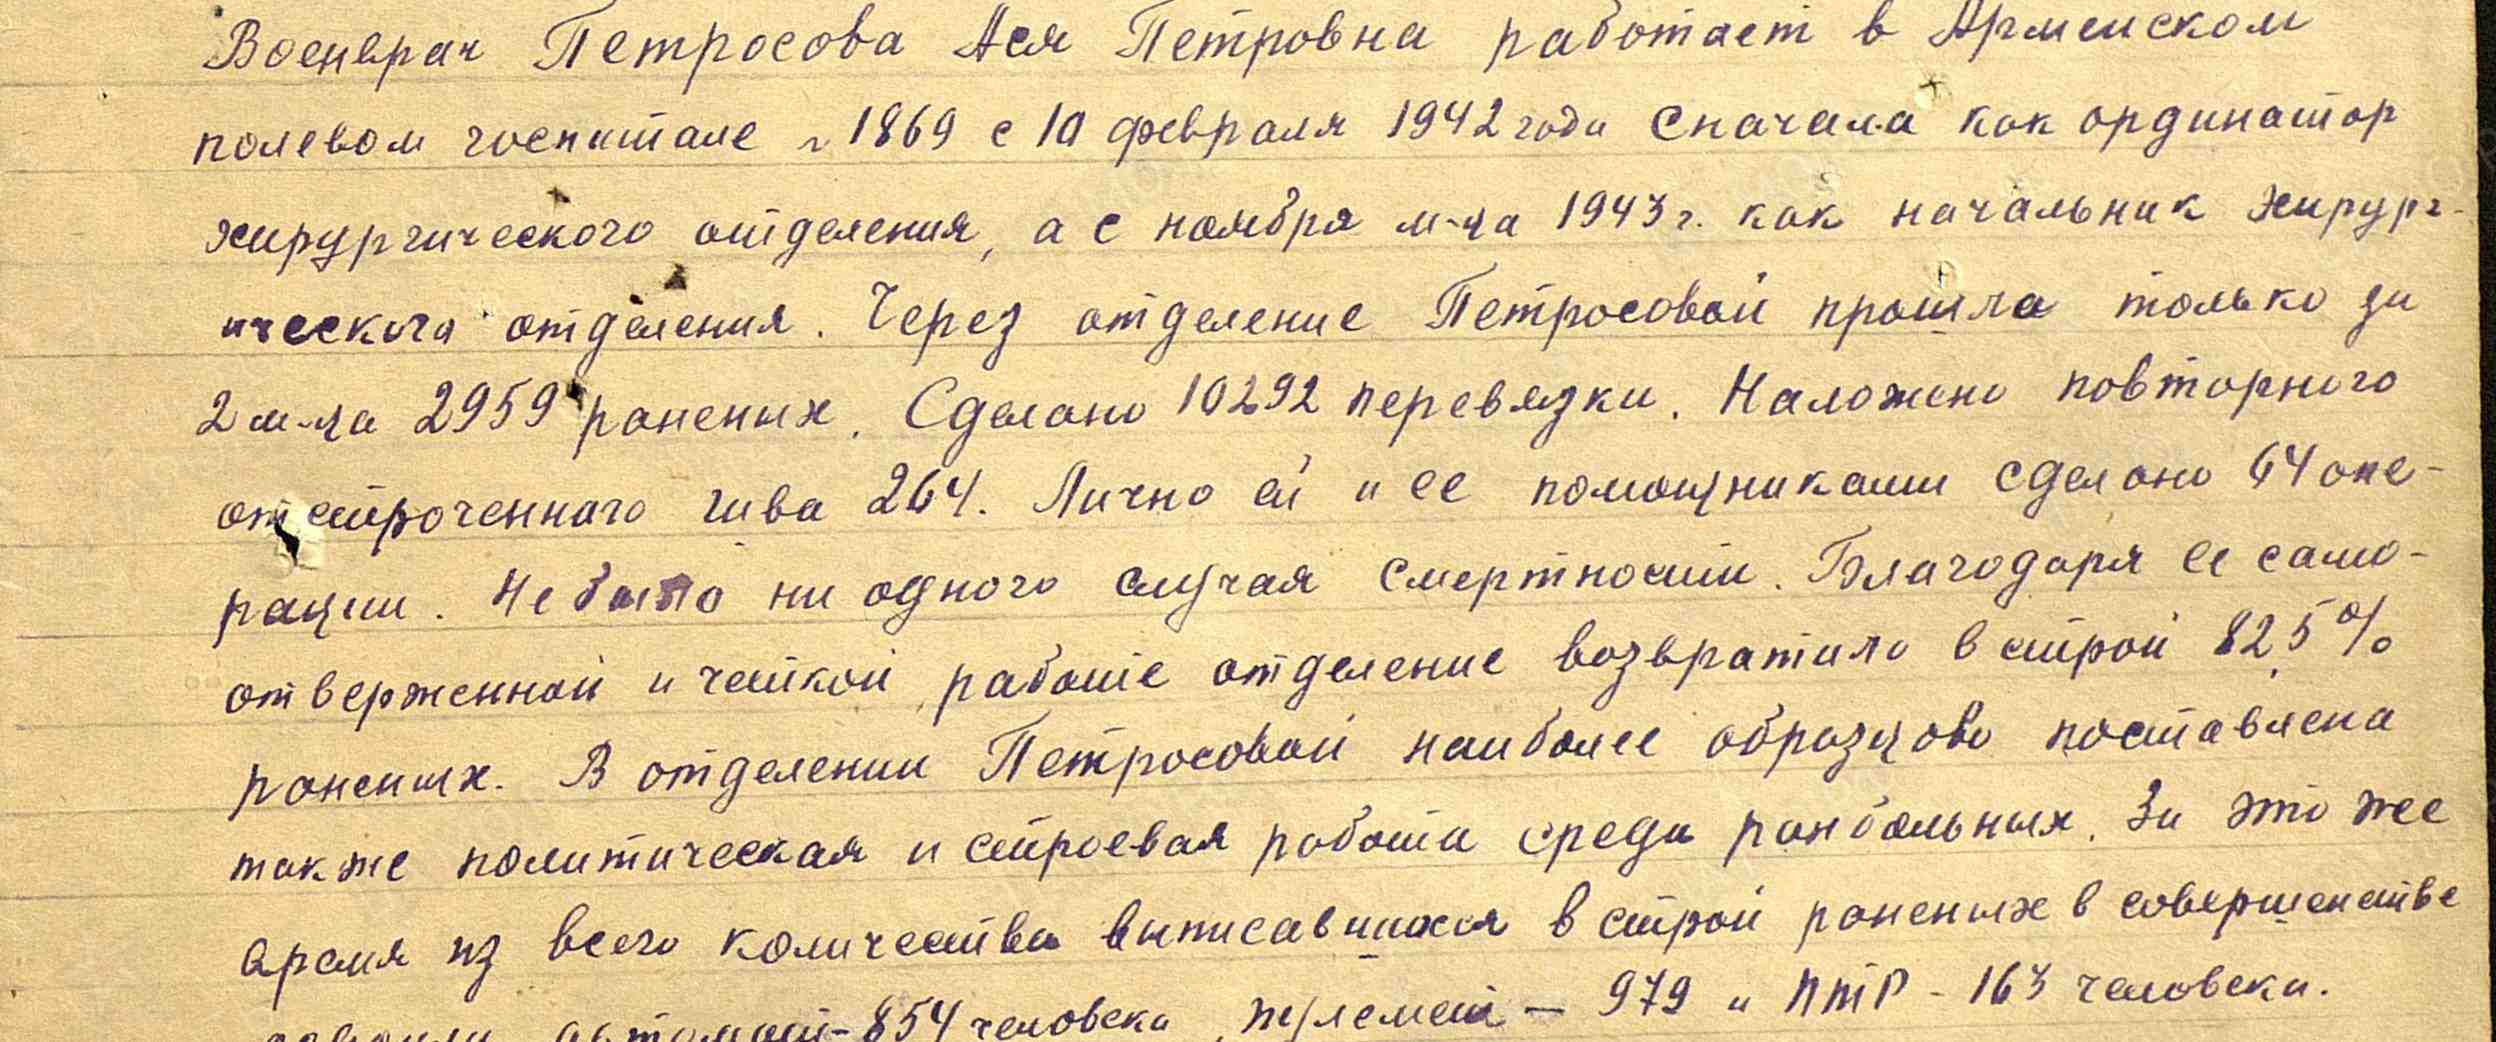 Военврач Петросова Ася Петровна работает в Армейском
полевом госпитале № 1869 с 10 февраля 1942 года сначала как ординатор
хирургического отделения, а с ноября м-ца 1943 г. как начальник хирург-
ического отделения. Через отделение Петросовой прошла только за
2 м-ца 2959 раненых. Сделано 10292 перевязки. Наложено повторного
отстроченного шва 264. Лично ей и ее помощниками сделано 64 опе-
рации. Не было ни одного случая смертности. Благодаря ее само-
отверженной и четкой работе отделение возвратило в строй 82,5%
раненых. В отделении Петросовой наиболее образцово поставлена
также политическая и строевая работа среди ранбольных. За это же
время из всего количества выписавшихся в строй раненых в совершенстве
автомат - 854 человека, пулемет - 979 и ПТР - 163 человека.